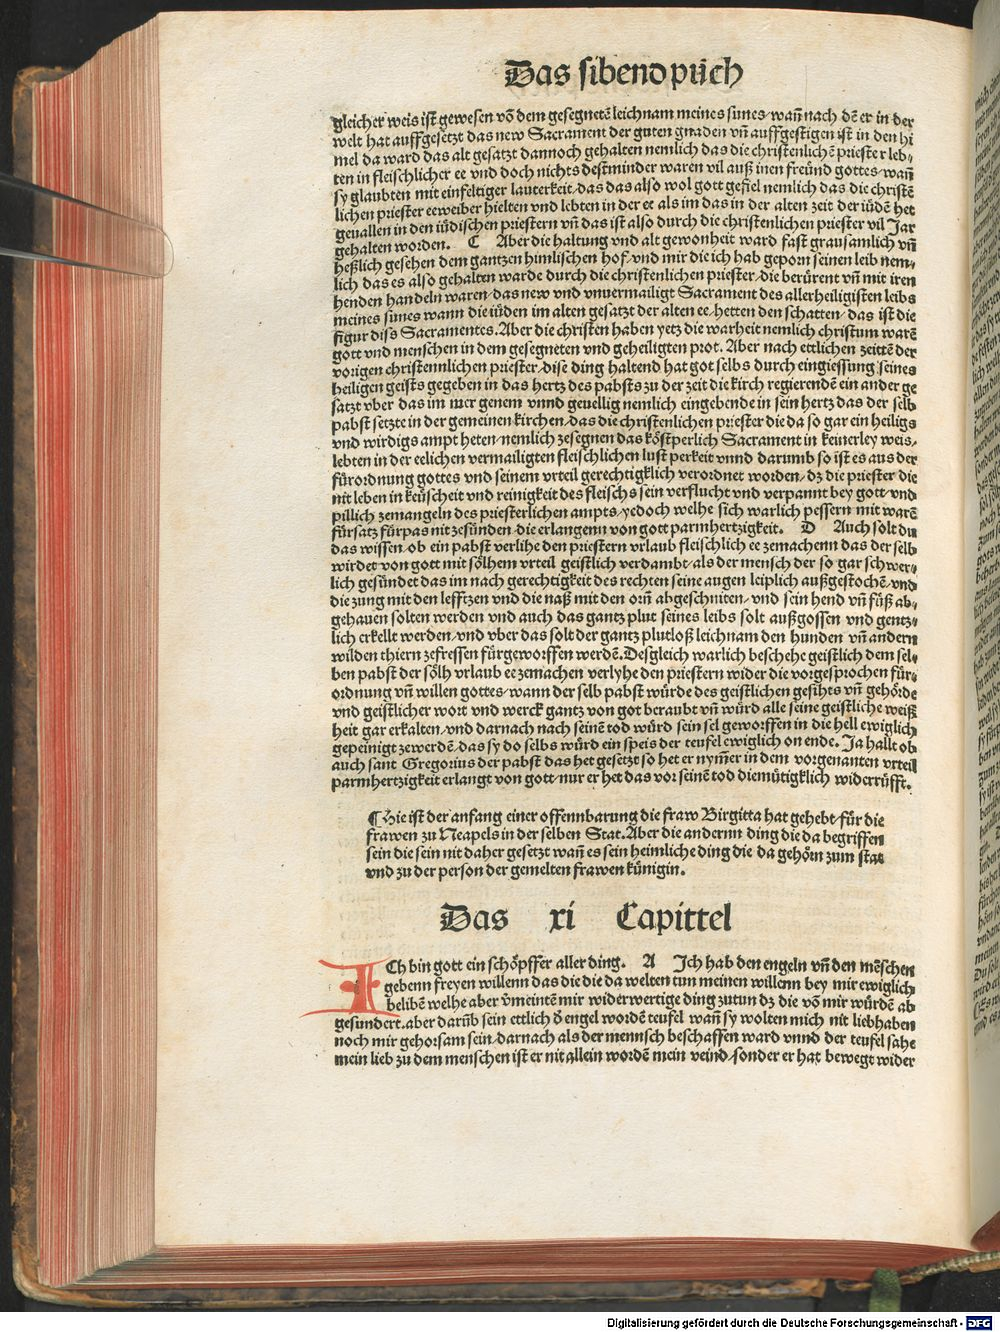 Das sibend půch
gleicher weis ist gewesen vō dem gesegnetē leichnam meines sunes/wañ nach dē er in der
welt hat auffgesetzt das new Sacrament der guten gnaden vñ auffgestigen ist in den hi
mel da ward das alt gesatzt dannoch gehalten nemlich das die christenlichē priester leb⸗
ten in fleischlicher ee vnd doch nichts destminder waren vil auß inen freünd gottes/wañ
sy glaubten mit einfeltiger lauterkeit/das das also wol gott gefiel nemlich das die christē
lichen priester eeweiber hielten vnd lebten in der ee als im das in der alten zeit der iüdē het
geuallen in den iüdischen priestern vñ das ist also durch die christenlichen priester vil Jar
gehalten worden. C Aber die haltung vnd alt gewonheit ward fast grausamlich vñ
heßlich gesehen dem gantzen himlischen hof/vnd mir die ich hab geporn seinen leib nem⸗
lich das es also gehalten warde durch die christenlichen priester/die berürent vñ mit iren
henden handeln waren/das new vnd vnuermailigt Sacrament des allerheiligisten leibs
meines sunes wann die iüden im alten gesatzt der alten ee/hetten den schatten/das ist die
figur diss Sacramentes. Aber die christen haben yetz die warheit nemlich christum warē
gott vnd menschen in dem gesegneten vnd geheiligten prot. Aber nach ettlichen zeittē der
vorigen christennlichen priester/dise ding haltend hat got selbs durch eingiessung seines
heiligen geists gegeben in das hertz des pabsts zu der zeit die kirch regierendē ein ander ge
satzt vber das im mer genem vnnd geuellig nemlich eingebende in sein hertz das der selb
pabst setzte in der gemeinen kirchen/das die christenlichen priester die da so gar ein heiligs
vnd wirdigs ampt heten/nemlich zesegnen das köstperlich Sacrament in keinerley weis⸗
lebten in der eelichen vermailigten fleischlichen lust perkeit vnnd darumb so ist es aus der
fürordnung gottes vnd seinem vrteil gerechtigklich verordnet worden/dz die priester die
nit leben in keüscheit vnd reinigkeit des fleischs sein verflucht vnd verpannt bey gott/vnd
pillich zemangeln des priesterlichen ampts/yedoch welhe sich warlich pessern mit warē
fürsatz fürpas nit zesünden/die erlangenn von gott parmhertzigkeit. D Auch solt du
das wissen/ob ein pabst verlihe den priestern vrlaub fleischlich ee zemachenn das der selb
wirdet von gott mit sölhem vrteil geistlich verdambt/als der mensch der so gar schwer⸗
lich gesündet das im nach gerechtigkeit des rechten seine augen leiplich außgestochē/vnd
die zung mit den lefftzen vnd die naß mit den orñ abgeschniten/vnd sein hend vñ füß ab⸗
gehauen solten werden vnd auch das gantz plut seines leibs solt außgossen vnd gentz⸗
lich erkellt werden/vnd vber das solt der gantz plutloß leichnam den hunden vñ andern
wilden thiern zefressen fürgeworffen werdē. Desgleich warlich beschehe geistlich dem sel⸗
ben pabst der sölh vrlaub ee zemachen verlyhe den priestern wider die vorgesprochen für⸗
ordnung vñ willen gottes/wann der selb pabst würde des geistlichen gesihts vñ gehörde
vnd geistlicher wort vnd werck gantz von got beraubt vñ würd alle seine geistliche weiß
heit gar erkalten/vnd darnach nach seinē tod würd sein sel geworffen in die hell ewiglich
gepeinigt zewerdē/das sy do selbs würd ein speis der teufel ewiglich on ende. Ja hallt ob
auch sant Gregorius der pabst das het gesetzt so het er nym̄er in dem vorgenanten vrteil
parmhertzigkeit erlangt von gott/nur er het das vor seinē tod diemütigklich widerrüfft.
¶ Hie ist der anfang einer offennbarung die fraw Birgitta hat gehebt/für die
frawen zu Neapels in der selben Stat. Aber die andernn ding die da begriffen
sein die sein nit daher gesetzt wañ es sein heimliche ding die da gehörn zum stat
vnd zu der person der gemelten frawen künigin.
Das xi Capittel
ICh bin gott ein schöpffer aller ding. A Jch hab den engeln vñ den mēschen
gebenn freyen willenn das die die da welten tun meinen willenn bey mir ewiglich
belibē welhe aber v̄meintē mir widerwertige ding zutun dz die vō mir würdē ab
gesundert. aber darūb sein ettlich d̄ engel wordē teufel wañ sy wolten mich nit liebhaben
noch mir gehorsam sein/darnach als der mennsch beschaffen ward vnnd der teufel sahe
mein lieb zu dem menschen ist er nit allein wordē mein veind/sonder er hat bewegt wider
Digitalisierung gefördert durch die Deutsche Forschungsgemeinschaft - DFG